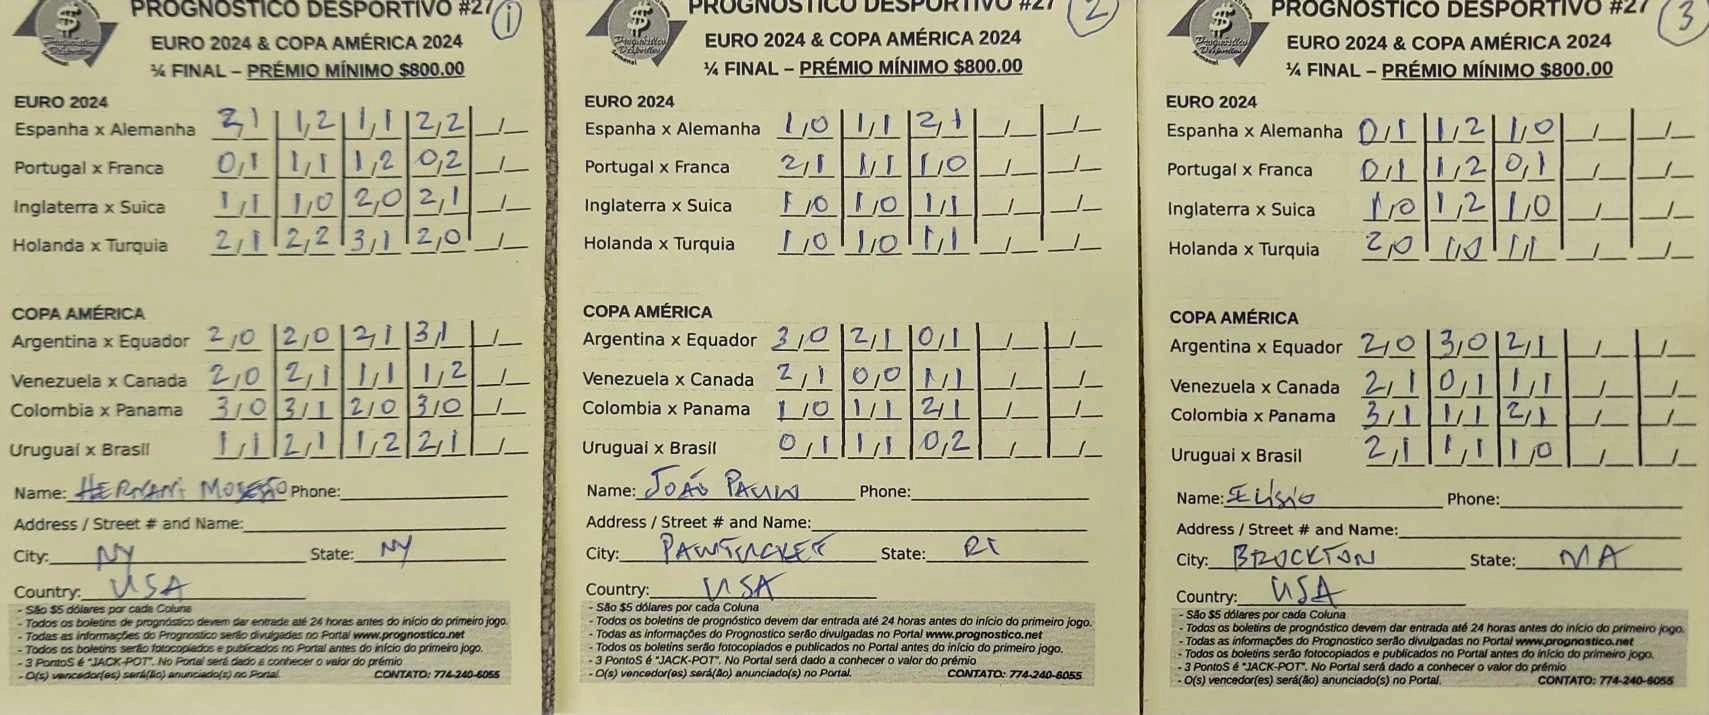 PROGNÓSTICO DESPORTIVO #27 1
EURO 2024 & COPA AMÉRICA 2024
¼ FINAL – PRÉMIO MÍNIMO $800.00
EURO 2024
Espanha x Alemanha 2/1 1/2 1/1 2/2 _/_
Portugal x Franca 0/1 1/1 1/2 0/2 _/_
Inglaterra x Suica 1/1 1/0 2/0 2/1 _/_
Holanda x Turquia 2/1 2/2 3/1 2/0 _/_
COPA AMÉRICA
Argentina x Equador 2/0 2/0 2/1 3/1 _/_
Venezuela x Canada 2/0 2/1 1/1 1/2 _/_
Colombia x Panama 3/0 3/1 2/0 3/0 _/_
Uruguai x Brasil 1/1 2/1 1/2 2/1 _/_
Name: HERNANI Phone:
Address / Street # and Name:
City: NY State: NY
Country: USA
- São $5 dólares por cada Coluna
- Todos os boletins de prognóstico devem dar entrada até 24 horas antes do início do primeiro jogo.
- Todas as informações do Prognostico serão divulgadas no Portal www.prognostico.net
- Todos os boletins serão fotocopiados e publicados no Portal antes do início do primeiro jogo.
- 3 PontoS é "JACK-POT". No Portal será dado a conhecer o valor do prémio
- O(s) vencedor(es) será(ão) anunciado(s) no Portal. CONTATO: 774-240-6055
PROGNÓSTICO DESPORTIVO #27 2
EURO 2024 & COPA AMÉRICA 2024
¼ FINAL – PRÉMIO MÍNIMO $800.00
EURO 2024
Espanha x Alemanha 1/0 1/1 2/1 _/_ _/_
Portugal x Franca 2/1 1/1 1/0 _/_ _/_
Inglaterra x Suica 1/0 1/0 1/1 _/_ _/_
Holanda x Turquia 1/0 1/0 1/1 _/_ _/_
COPA AMÉRICA
Argentina x Equador 3/0 2/1 0/1 _/_ _/_
Venezuela x Canada 2/1 0/0 1/1 _/_ _/_
Colombia x Panama 1/0 1/1 2/1 _/_ _/_
Uruguai x Brasil 0/1 1/1 0/2 _/_ _/_
Name: JOÃO PAULO Phone:
Address / Street # and Name:
City: PAWTUCKET State: RI
Country: USA
- São $5 dólares por cada Coluna
- Todos os boletins de prognóstico devem dar entrada até 24 horas antes do início do primeiro jogo.
- Todas as informações do Prognostico serão divulgadas no Portal www.prognostico.net
- Todos os boletins serão fotocopiados e publicados no Portal antes do início do primeiro jogo.
- 3 PontoS é "JACK-POT". No Portal será dado a conhecer o valor do prémio
- O(s) vencedor(es) será(ão) anunciado(s) no Portal. CONTATO: 774-240-6055
PROGNÓSTICO DESPORTIVO #27 3
EURO 2024 & COPA AMÉRICA 2024
¼ FINAL – PRÉMIO MÍNIMO $800.00
EURO 2024
Espanha x Alemanha 0/1 1/2 1/0 _/_ _/_
Portugal x Franca 0/1 1/2 0/1 _/_ _/_
Inglaterra x Suica 1/0 1/2 1/0 _/_ _/_
Holanda x Turquia 2/0 1/0 1/1 _/_ _/_
COPA AMÉRICA
Argentina x Equador 2/0 3/0 2/1 _/_ _/_
Venezuela x Canada 2/1 0/1 1/1 _/_ _/_
Colombia x Panama 3/1 1/1 2/1 _/_ _/_
Uruguai x Brasil 2/1 1/1 1/0 _/_ _/_
Name: ELÍSIO Phone:
Address / Street # and Name:
City: BROCKTON State: MA
Country: USA
- São $5 dólares por cada Coluna
- Todos os boletins de prognóstico devem dar entrada até 24 horas antes do início do primeiro jogo.
- Todas as informações do Prognostico serão divulgadas no Portal www.prognostico.net
- Todos os boletins serão fotocopiados e publicados no Portal antes do início do primeiro jogo.
- 3 PontoS é "JACK-POT". No Portal será dado a conhecer o valor do prémio
- O(s) vencedor(es) será(ão) anunciado(s) no Portal. CONTATO: 774-240-6055